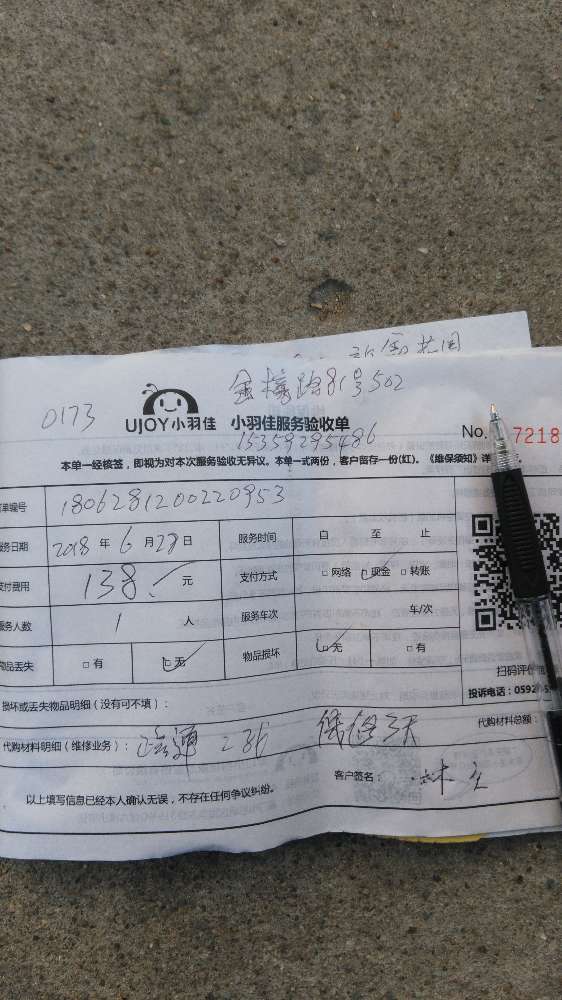 金榜路81号502
0173
UJOY小羽佳 小羽佳服务验收单
15359295486
No. 7218
本单一经核签，即视为对本次服务验收无异议。本单一式两份，客户留存一份(红)。《维保须知》详
单编号 1806281200220953
务日期 2018 年 6 月 28 日 服务时间 自 至 止
支付费用 138 元 支付方式 □网络 □现金 □转账
服务人数 1 人 服务车次 车/次
物品丢失 □有 □无 物品损坏 □无 □有
扫码评价
损坏或丢失物品明细（没有可不填）：
投诉电话：0592
代购材料明细（维修业务）： 保修3天 代购材料总额：
以上填写信息已经本人确认无误，不存在任何争议纠纷。 客户签名： 林